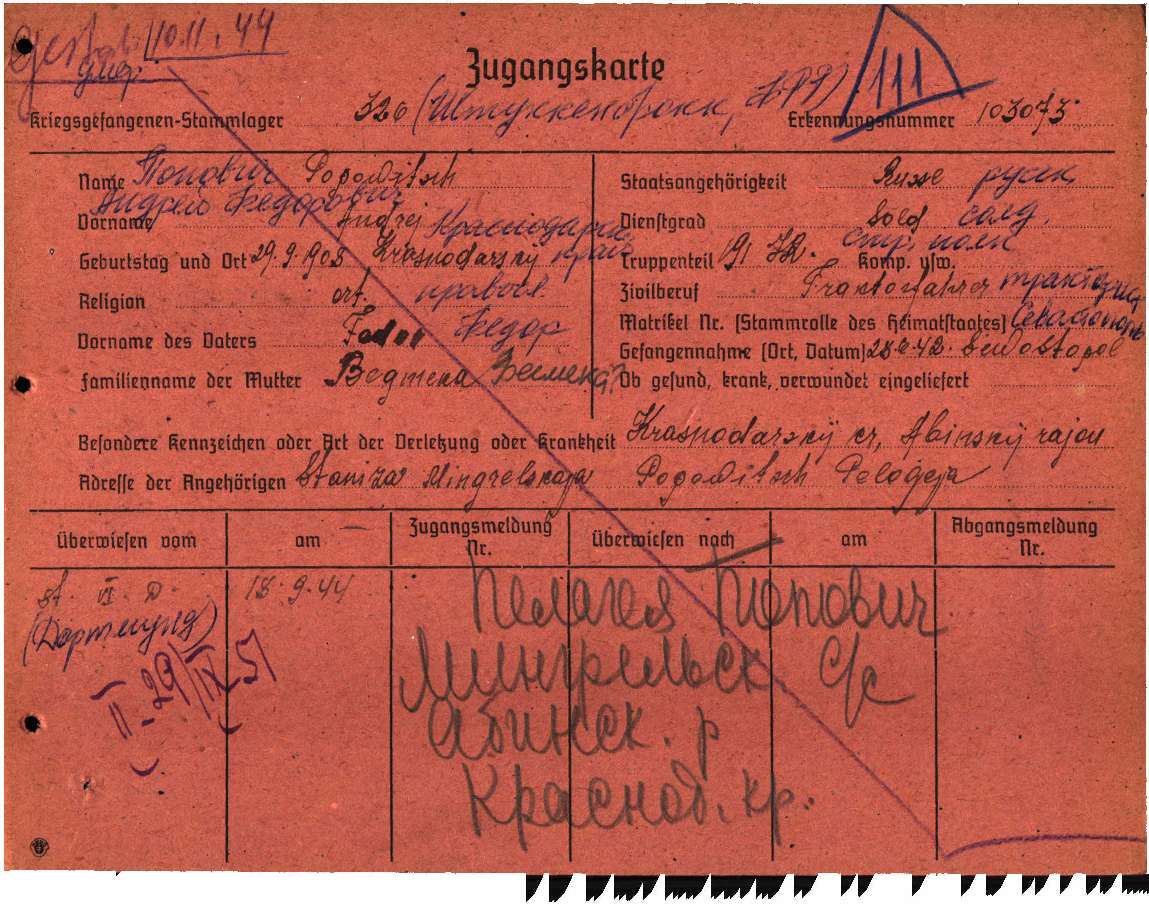 Gest. 10.11.44
умер.
Zugangskarte
111
Kriegsgefangenen-Stammlager 326 (Штуккенброкк, Erkennungsnummer 103073
Name Попович Popowitsch
Андрей Федорович
Vorname Andrej
Краснодарск. край
Geburtstag und Ort 29.9.1908 Krasnodarsky
Religion ort. правосл.
Vorname des Vaters Fedor Федор
Familienname der Mutter
Staatsangehörigkeit Russe русск
Dienstgrad Sold солд.
стр. полк
Truppenteil 191 J.R. Komp. usw.
Zivilberuf Traktorfahrer тракторист
Matrikel Nr. (Stammrolle des Heimatstaates) Севастополь
Gefangennahme (Ort, Datum)
Ob gesund, krank, verwundet eingeliefert
Besondere Kennzeichen oder Art der Verletzung oder Krankheit Krasnodarský cr, Abinský rajon
Adresse der Angehörigen Staniza Mingrelskaja Popowitsch Pelogeja
Überwiesen vom am Zugangsmeldung Nr. Überwiesen nach am Abgangsmeldung Nr.
st. VI D. 18.9.44
(Дортмунд)
II-29/IX 51
Пелагея Попович
Мингрельск с/с
Абинск. р
Краснод. кр.